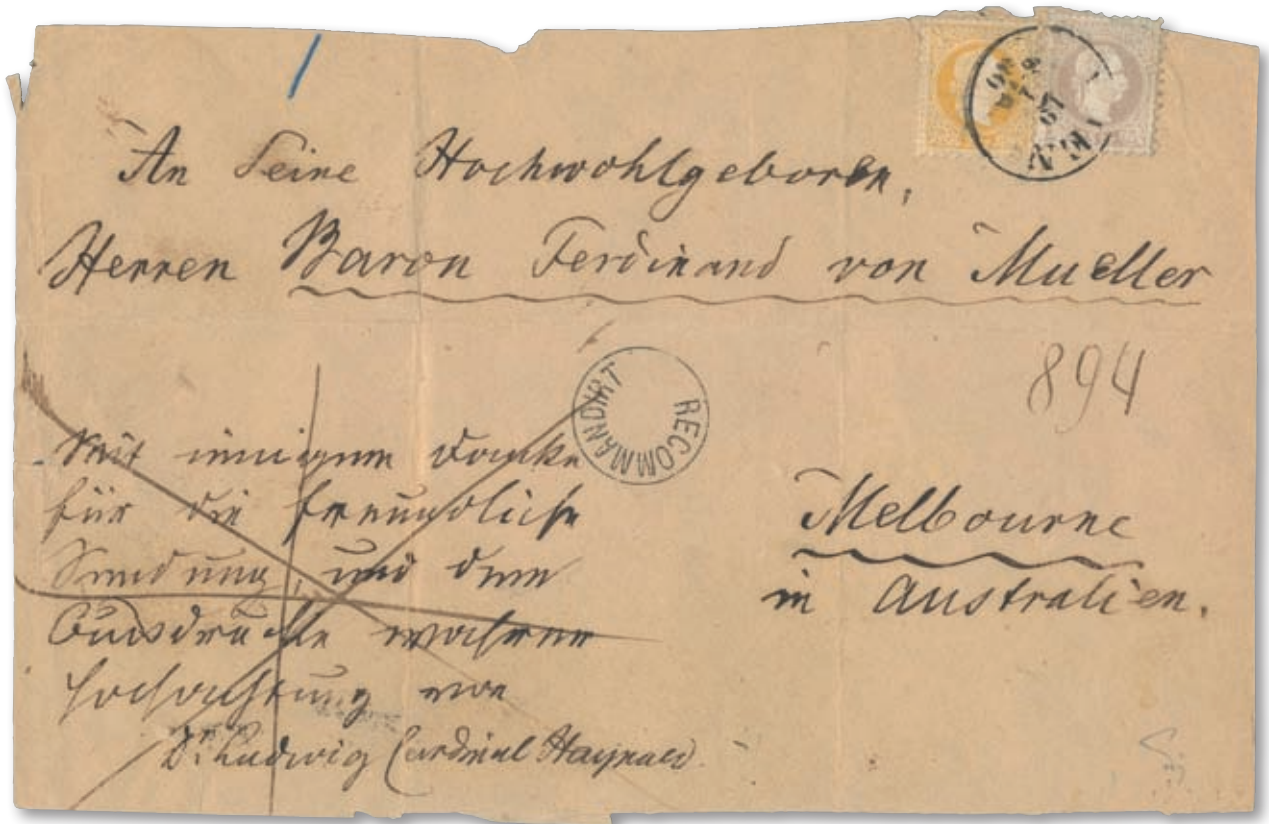 An Seine Hochwohlgeboren,
Herren Baron Ferdinand von Mueller
RECOMMANDIRT
894
Mit innigem Danke
für die freundliche
Sendung, und dem
Ausdrucke wahrer
Hochachtung von
Dr. Ludwig Cardinal Haynald.
Melbourne
in Australien.